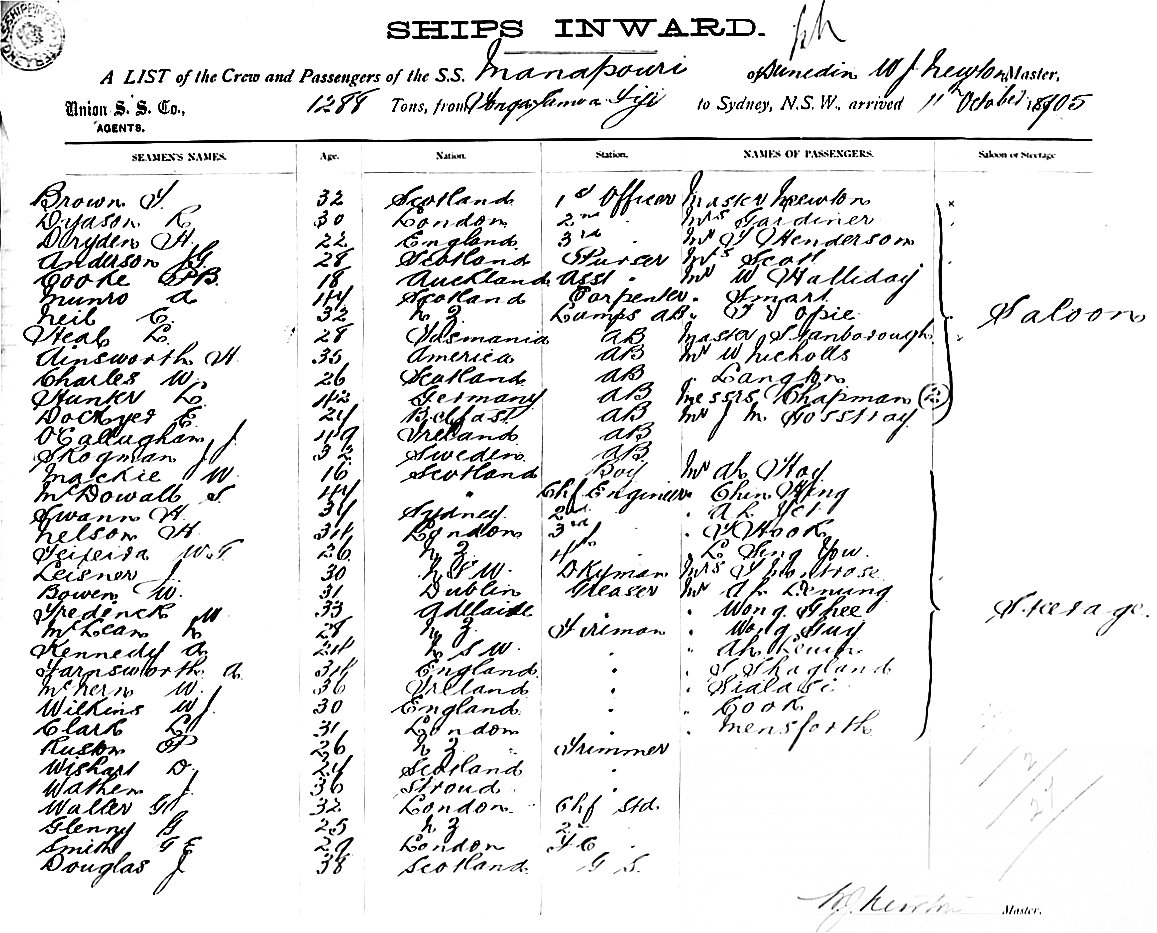 SHIPS INWARD.
A LIST of the Crew and Passengers of the S.S. Manapouri of Dunedin W J Newton Master,
Union S. S. Co., AGENTS. 1288 Tons, from Tonga Samoa Fiji to Sydney, N.S.W., arrived 11th October 1905
SEAMEN'S NAMES. Age. Nation. Station. NAMES OF PASSENGERS. Saloon or Steerage
Brown 32 Scotland 1st Officer Master Newton
Dyason 30 London 2nd Mrs Gardiner
Dryden H. 22 England 3rd Mr Henderson
Anderson J.G 28 Scotland Purser Mrs Scott
Cooke P.B. 18 Auckland Asst " Mr W Halliday
Munro A 44 Scotland Carpenter " Smart
Neil E. 32 N Z Lamps AB " Opie
Heal L. 28 Tasmania AB Master Stanborough
Ainsworth H 35 America AB Mr W Nicholls
Charles W. 26 Scotland AB " Langton
Hunker L 42 Germany AB Messrs Chapman (2)
Dockyer E. 24 Belfast AB Mr J M Hosstray
Saloon
O'Callaghan J 49 Ireland AB
Skogman J 32 Sweden AB
Mackie W. 16 Scotland Boy Mr Ah Hoy
McDowall S. 44 " Chf Engineer " Chin Hing
Swann H. 34 Sydney 2nd " " Ah Yet
Nelson H. 34 London 3rd " " Hook
Teixeira W.T 26 N Z 4th " Sing You
Leisner J. 30 N S W. Dkyman Mrs Montrose
Bowen W. 31 Dublin Greaser Mr Ah
Frederick W 33 Adelaide " " Wong Ghee
McLean 28 N Z Fireman " Wong Guy
Kennedy A 24 N S W. " " Ah
Farnsworth A 34 England " " Shagland
McNern W. 36 Ireland " "
Wilkins W J. 30 England " " Cook
Clark 31 London " " Mensforth
Steerage.
Ruston 26 N Z Trimmer
Wishart D. 24 Scotland "
Wathen J. 36 Stroud "
Waller G 32 London Chf Std.
Glenny G 25 N Z 2nd "
Smith T E 29 London F C "
Douglas J 38 Scotland G S.
W J Newton Master.